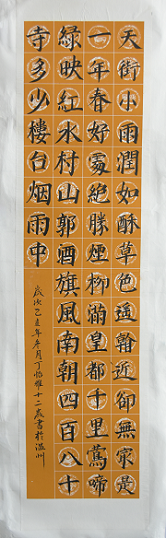 天街小雨潤如酥草色遥看近卻無最是
一年春好處絕勝煙柳滿皇都千里鶯啼
綠映紅水村山郭酒旗風南朝四百八十
寺多少樓台烟雨中
歲次己丑年冬月丁怡雅十二歲書於温州